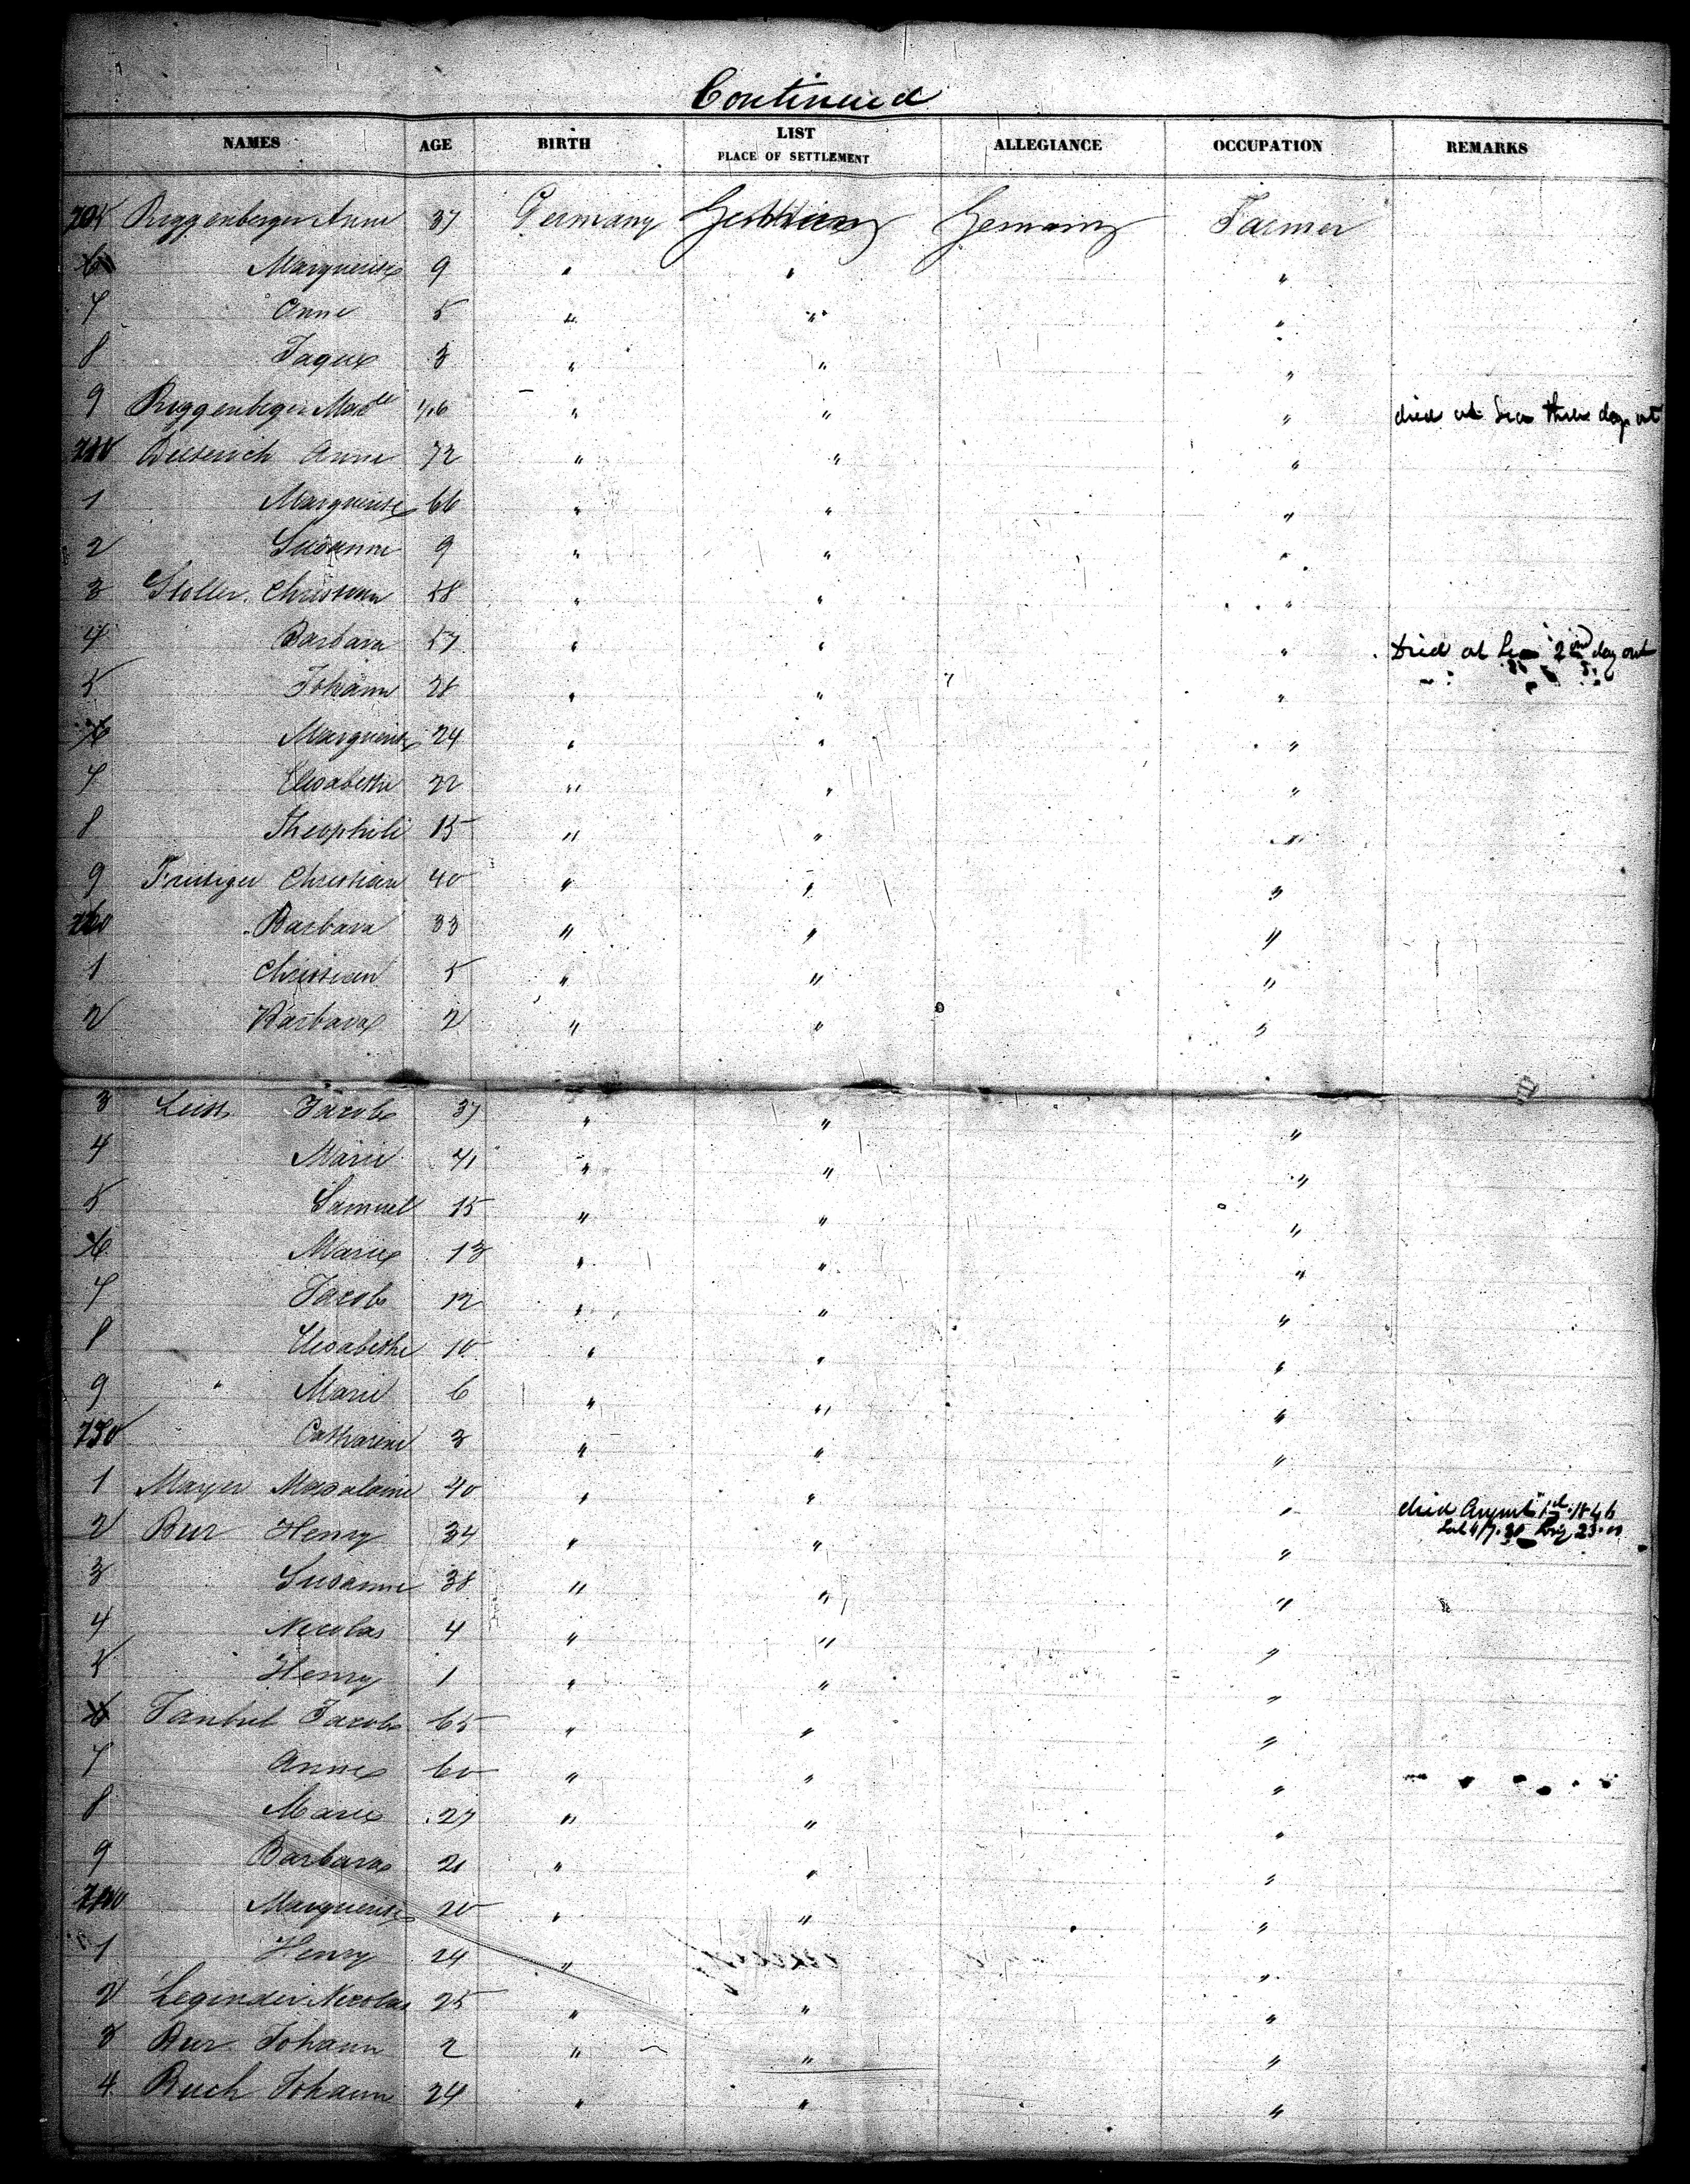 Continued
NAMES AGE BIRTH LIST PLACE OF SETTLEMENT ALLEGIANCE OCCUPATION REMARKS
205 Roggenberger Anne 37 Germany Germany Farmer
6 Marguerite 9 " " "
7 Anne 5 " " "
8 Jaques 3 " " "
9 " " " died at Sea three day out
210 Dieterich Anne 72 " " "
1 Marguerite 66 " " "
2 Susanne 9 " " "
3 Stoller Christian 58 " " "
4 Barbara 57 " " " Died at Sea 2nd day out
5 Johann 28 " " "
6 Marguerite 24 " " "
7 Elisabethe 22 " " "
8 Theophile 15 " " "
9 Frutiger Christian 40 " " "
220 Barbara 33 " " "
1 Christian 5 " " "
2 Barbara 2 " " "
3 Jacob 37 " " "
4 Marie 41 " " "
5 Samuel 15 " " "
6 Marie 13 " " "
7 Jacob 12 " " "
8 Elisabethe 10 " " "
9 " Marie 6 " " "
230 Catharine 3 " " "
1 Mayer Madalaine 40 " " " died August 1846
2 Bur Henry 34 " " "
3 Susanne 38 " " "
4 Nicolas 4 " " "
5 Henry 1 " " "
6 Jacob 65 " " "
7 Anne 60 " " "
8 Marie 27 " " "
9 Barbara 21 " " "
240 Marguerite 20 " " "
1 Henry 24 " " "
2 Nicolas 25 " " "
3 Bur Johann 2 " " "
4 Buch Johann 24 " " "